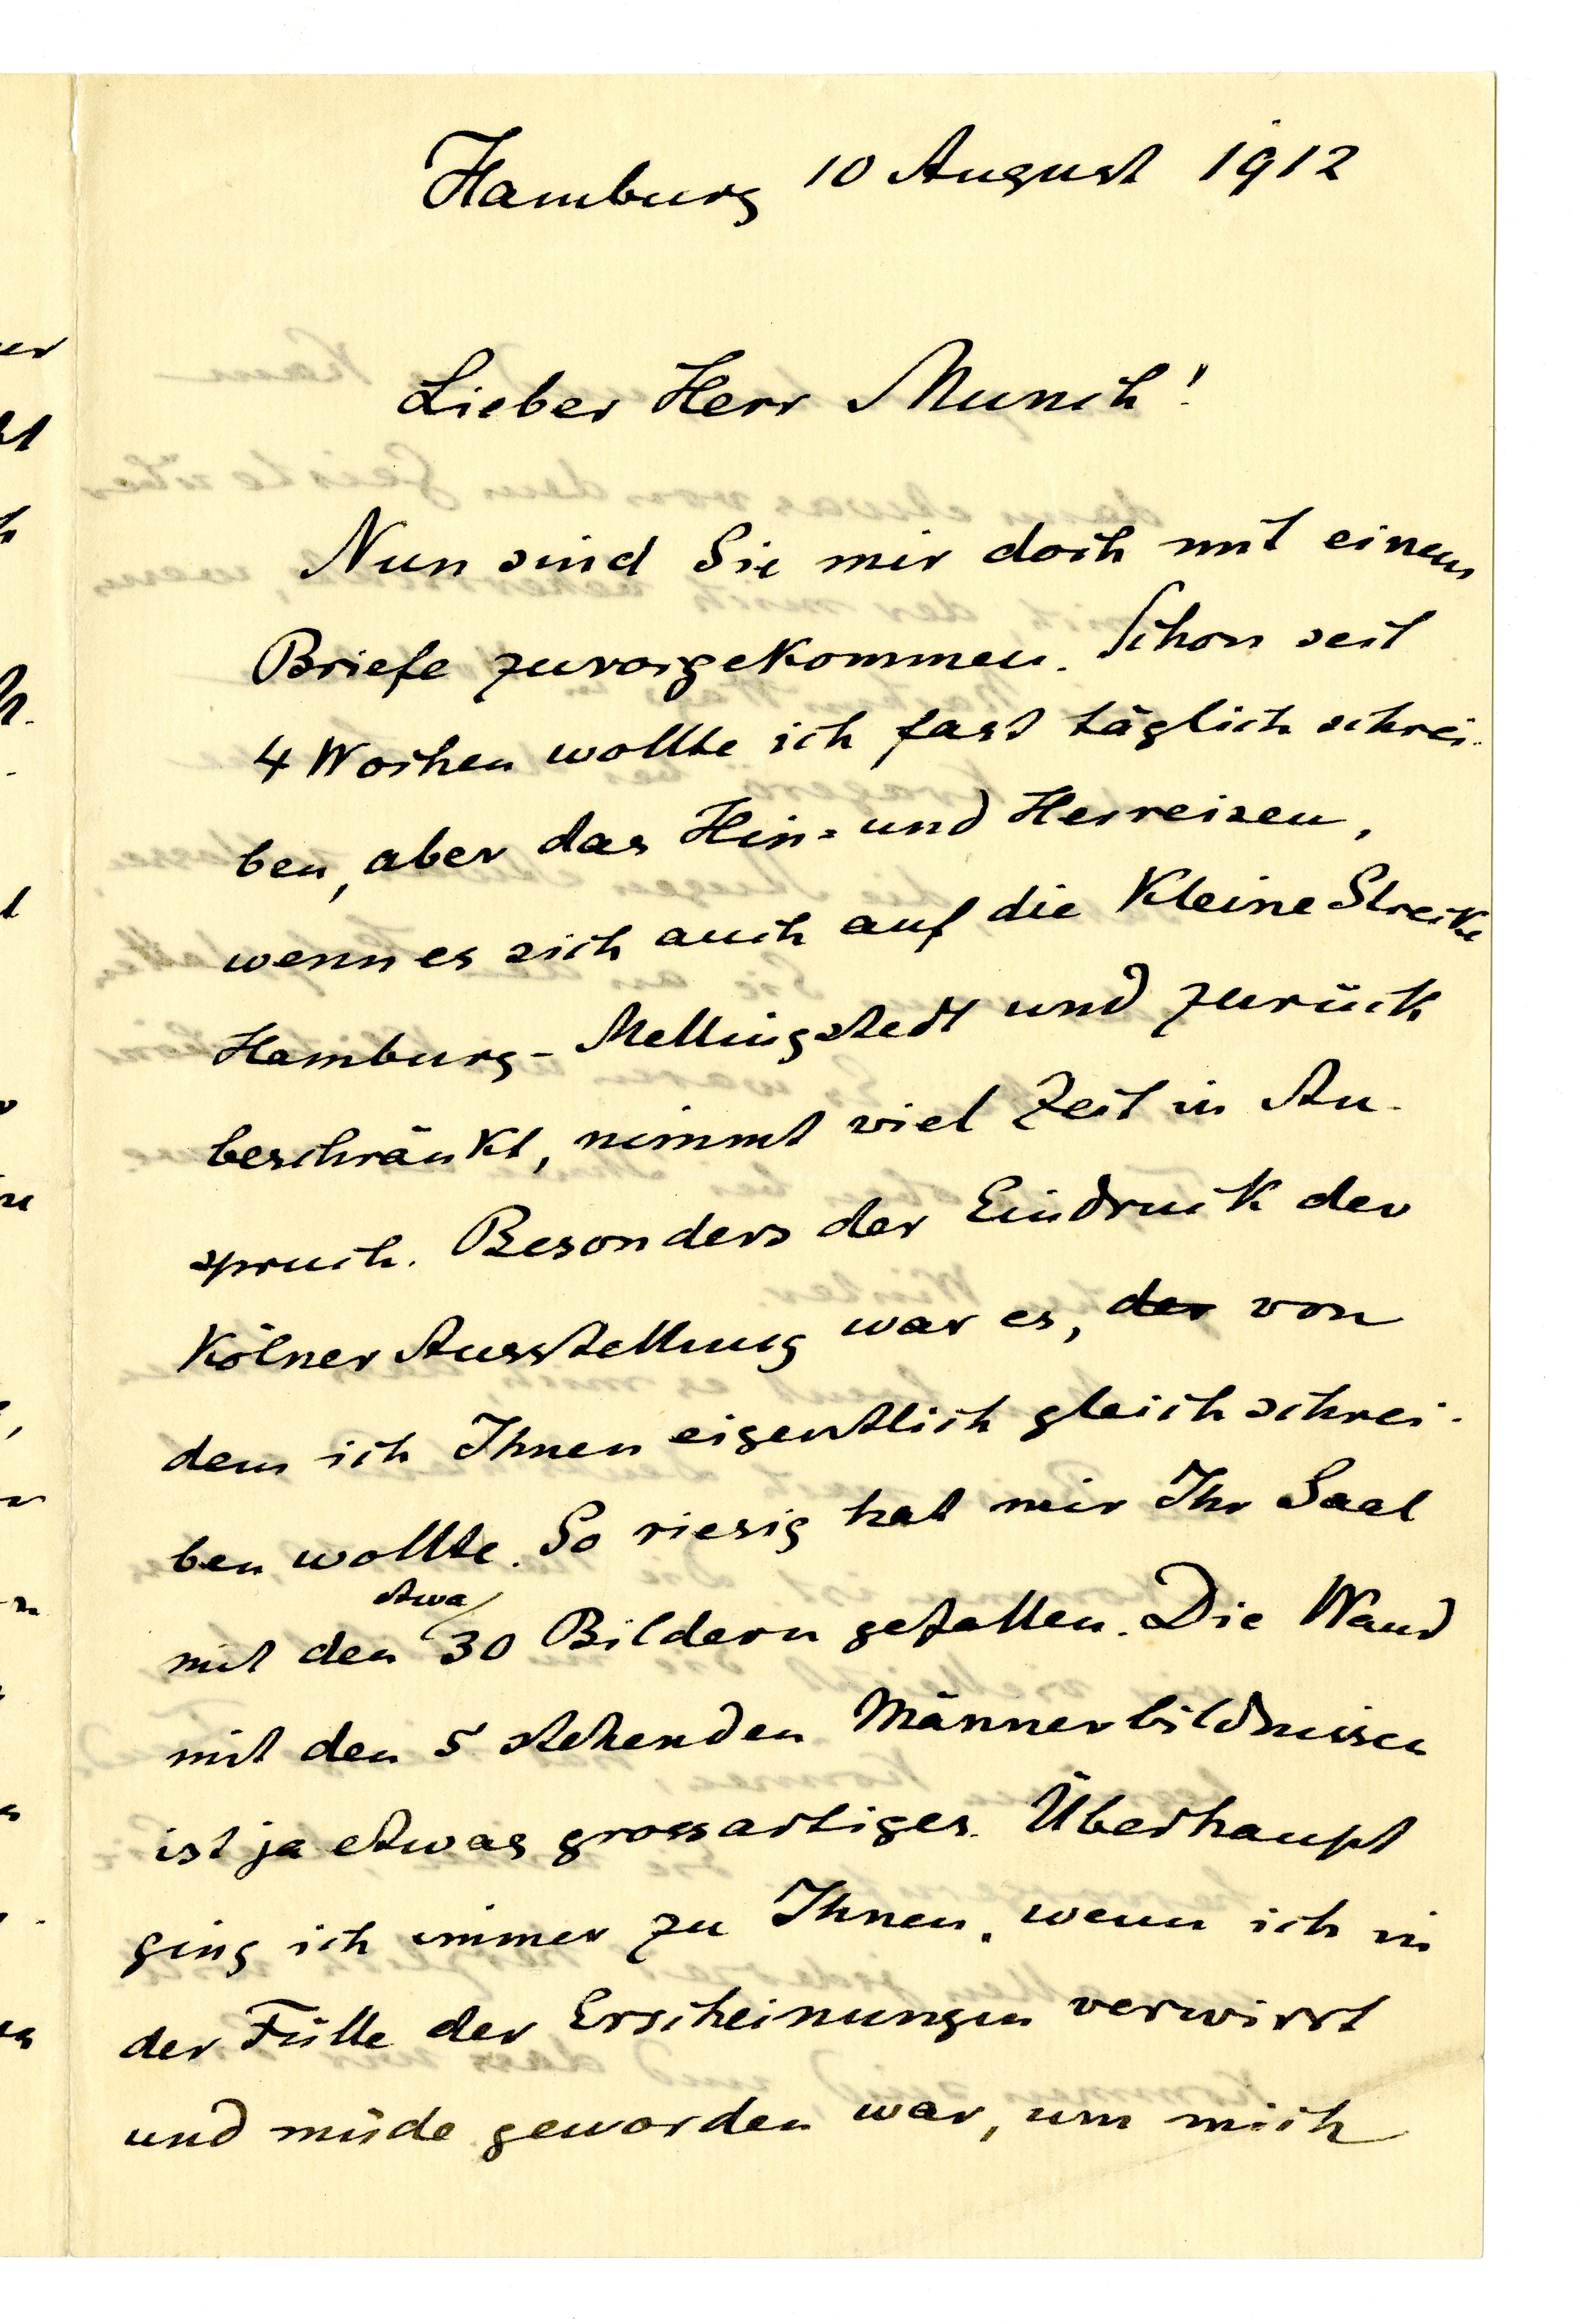 Hamburg 10 August 1912
Lieber Herr Munch!
Nun sind Sie mir doch mit einem
Briefe zuvorgekommen. Schon seit
4 Wochen wollte ich fast täglich schrei-
ben, aber das Hin- und Herreisen,
wenn es sich auch auf die kleine Strecke
Hamburg - Mellingstedt und zurück
beschränkt, nimmt viel Zeit in An-
spruch. Besonders der Eindruck der
Kölner Ausstellung war es, der von
dem ich Ihnen eigentlich gleich schrei-
ben wollte. So riesig hat mir Ihr Saal
mit den etwa 30 Bildern gefallen. Die Wand
mit den 5 stehenden Männerbildnissen
ist ja etwas grossartiges. Überhaupt
ging ich immer zu Ihnen, wenn ich in
der Fülle der Erscheinungen verwirrt
und müde geworden war, um mich